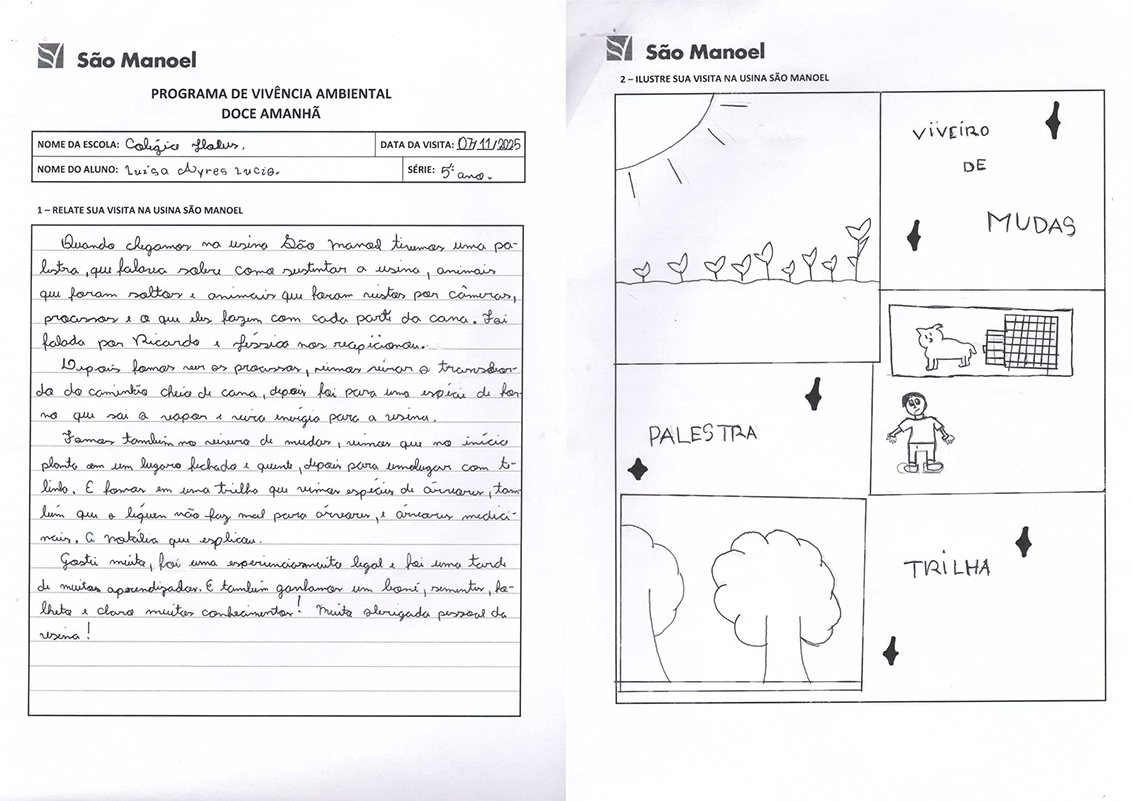 São Manoel
PROGRAMA DE VIVÊNCIA AMBIENTAL
DOCE AMANHÃ
NOME DA ESCOLA: Colégio
DATA DA VISITA: 07/11/2025
NOME DO ALUNO: Luísa Ayres Lucio.
SÉRIE: 5º ano.
1 – RELATE SUA VISITA NA USINA SÃO MANOEL
Quando chegamos na usina São Manoel tivemos uma pa-
lestra, que falava sobre como sustentar a usina, animais
que foram soltos e animais que foram vistos por câmeras,
processos e o que eles fazem com cada parte da cana. Foi
falada por Ricardo e Jéssica nos recepcionou.
Depois fomos ver os processos, vimos virar o transbor-
do do caminhão cheio de cana, depois foi para uma espécie de for-
no que sai o vapor e vira energia para a usina.
Fomos também no viveiro de mudas, vimos que no início
planta em um lugar fechado e quente, depois para um lugar com te-
linha. E fomos em uma trilha que vimos espécies de árvores, tam-
bém que o líquen não faz mal para árvores, e árvores medici-
nais. A Natália que explicou.
Gostei muito, foi uma experiencia muito legal e foi uma tarde
de muitos aprendizados. E também ganhamos um boné, sementes, fo-
lheto e claro muitos conhecimentos! Muito obrigada pessoal da
usina!
São Manoel
2 – ILUSTRE SUA VISITA NA USINA SÃO MANOEL
VIVEIRO
DE
MUDAS
PALESTRA
TRILHA